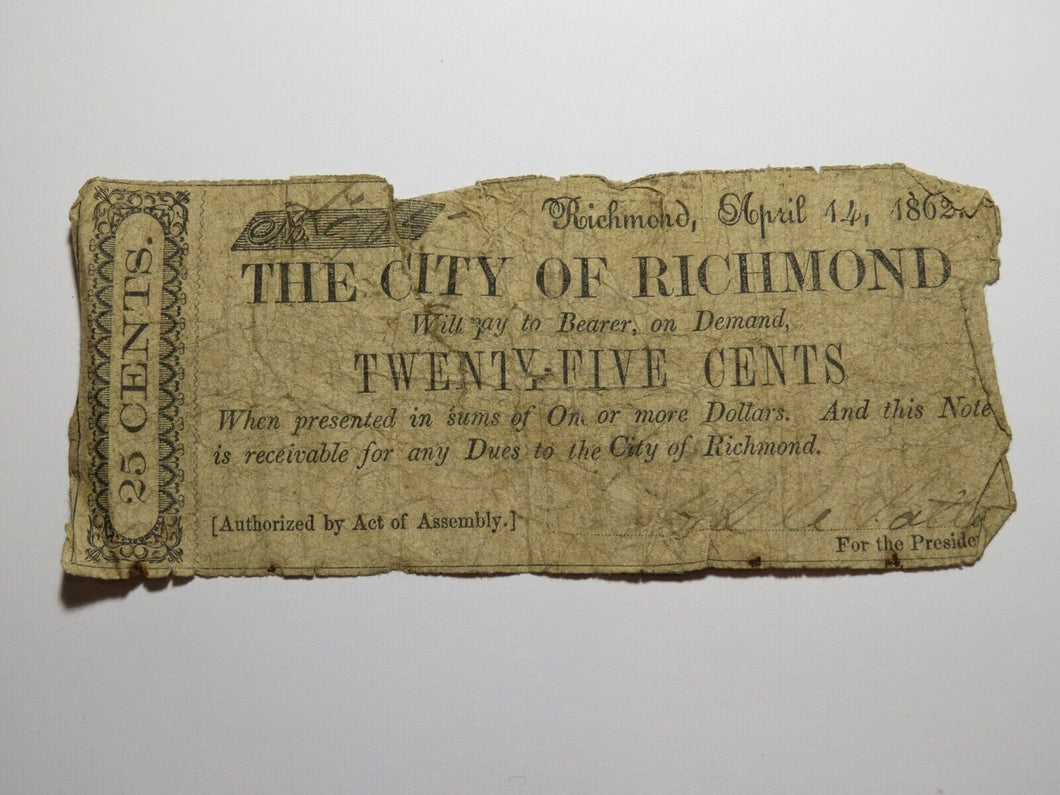 25 CENTS.
No.
Richmond, April 14, 1862.
THE CITY OF RICHMOND
Will pay to Bearer, on Demand,
TWENTY-FIVE CENTS
When presented in sums of On or more Dollars. And this Note
is receivable for any Dues to the City of Richmond.
[Authorized by Act of Assembly.]
For the Preside